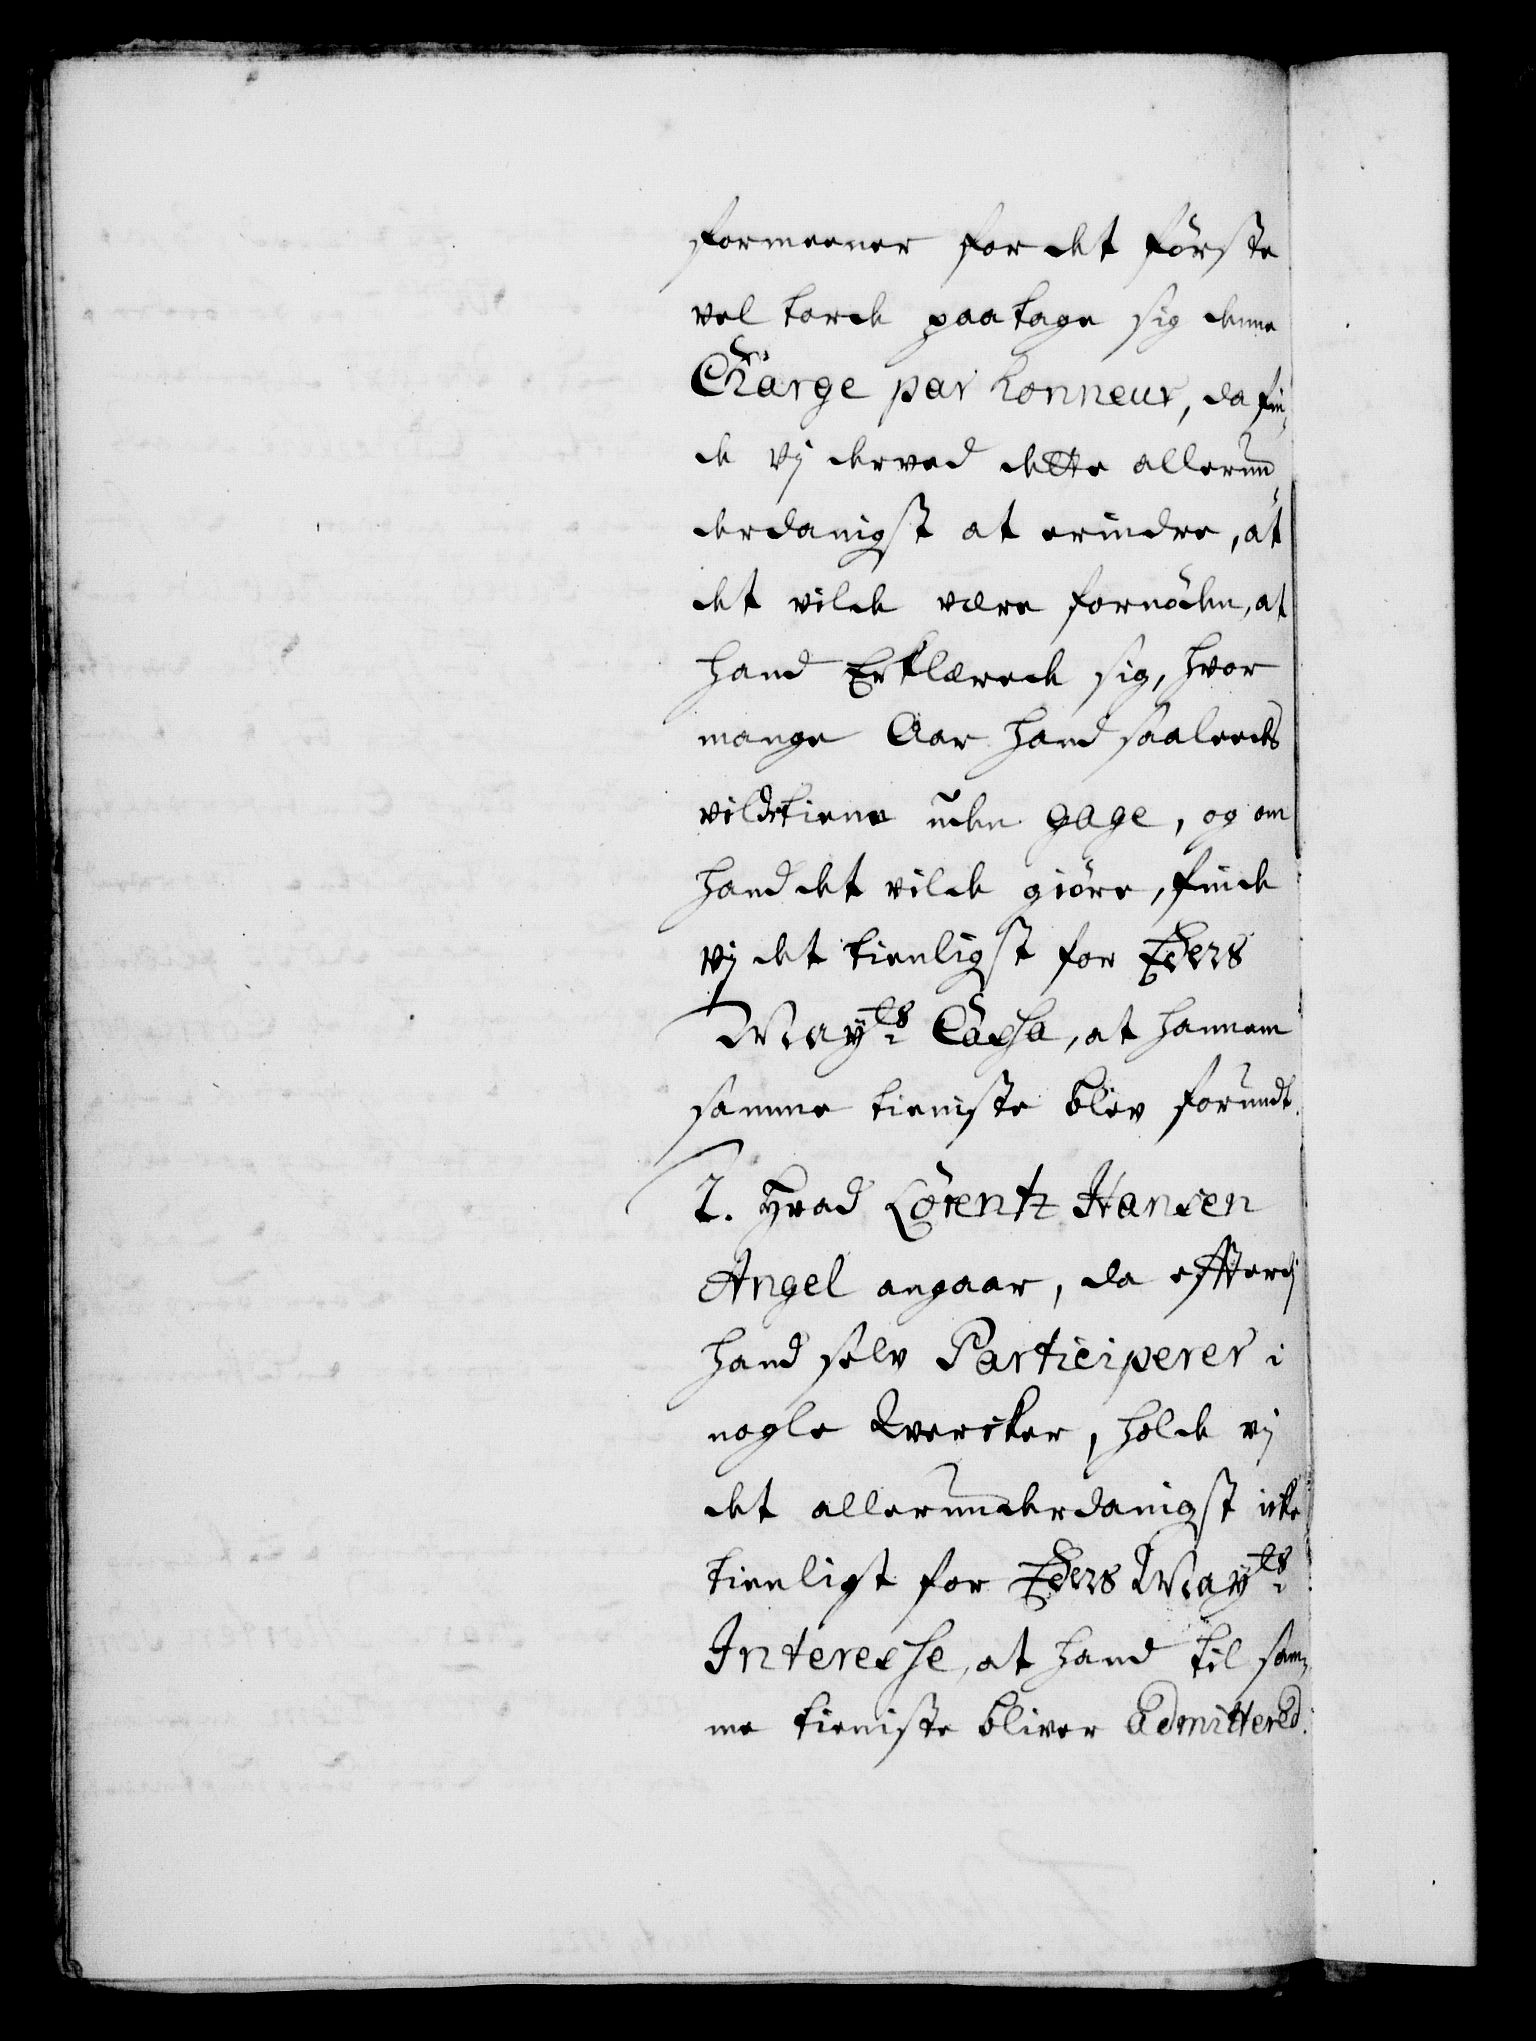 formeener for det förste
vel torde paatage sig denne
Charge par honneur, da fin-
de vj derved dette allerun-
derdanigst at erindre, at
det vilde være fornöden, at
hand Erklærede sig, hvor
mange Aar hand saaleedes
vilde tiene uden gage, og om
hand det vilde giöre, finde
vj det tienligst for Eders
Mayts Cassa, at hannem
samme tieniste blev forundt.
2. Hvad Lorentz Hansen
Angel angaar, da efftterdj
hand selv Participerer i
nogle Kvercker, holde vj
det allerunderdanigst icke
tienligt for Eders Mayts
Interesse, at hand til sam-
me tieniste bliver Admittered.